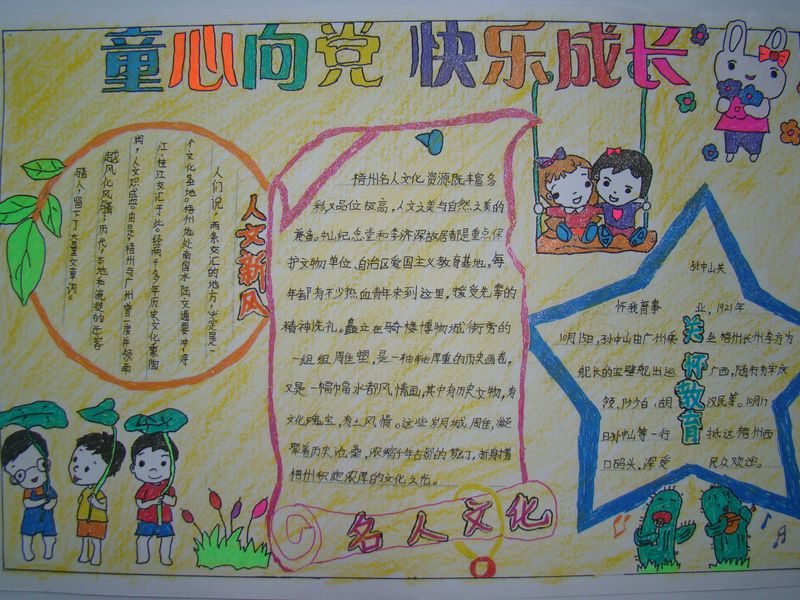 童心向党 快乐成长
人文新风
人们说，两条江交汇的地方，必定是一
个文化圣地。梧州地处南国水陆交通要冲，浔
江、桂江交汇于此。经两千多年历史文化熏陶
，人文积盛。由是，梧州与广州曾一度并领南
越风化风骚，历代，本地和流徙的迁客
骚人，留下了大量文章词。
梧州名人文化资源既丰富多
彩又品位极高，人文之美与自然之美的
兼备。中山纪念堂和李济深故居都是重点保
护文物单位、自治区爱国主义教育基地，每
年都有不少热血青年来到这里，接受先辈的
精神洗礼。矗立在骑楼博物城街旁的
一组组雕塑，是一种厚重的历史画卷，
又是一幅幅水都风情画，其中有历史文物，有
文化瑰宝，有土风情。这些岁月城雕，凝
聚着历史沧桑，浓缩千年古郡的梦幻，折射着
梧州积淀浓厚的文化文化。
名人文化
关怀教育
孙中山关
怀我育事 业，1921年
10月15日，孙中山由广州乘 坐梧州长州李方为
舰长的宝璧舰出巡 广西，随行有宋庆
领、 胡 汉民等。10月17
日孙中山等一行 抵达梧州西
口码头，深受 民众欢迎。